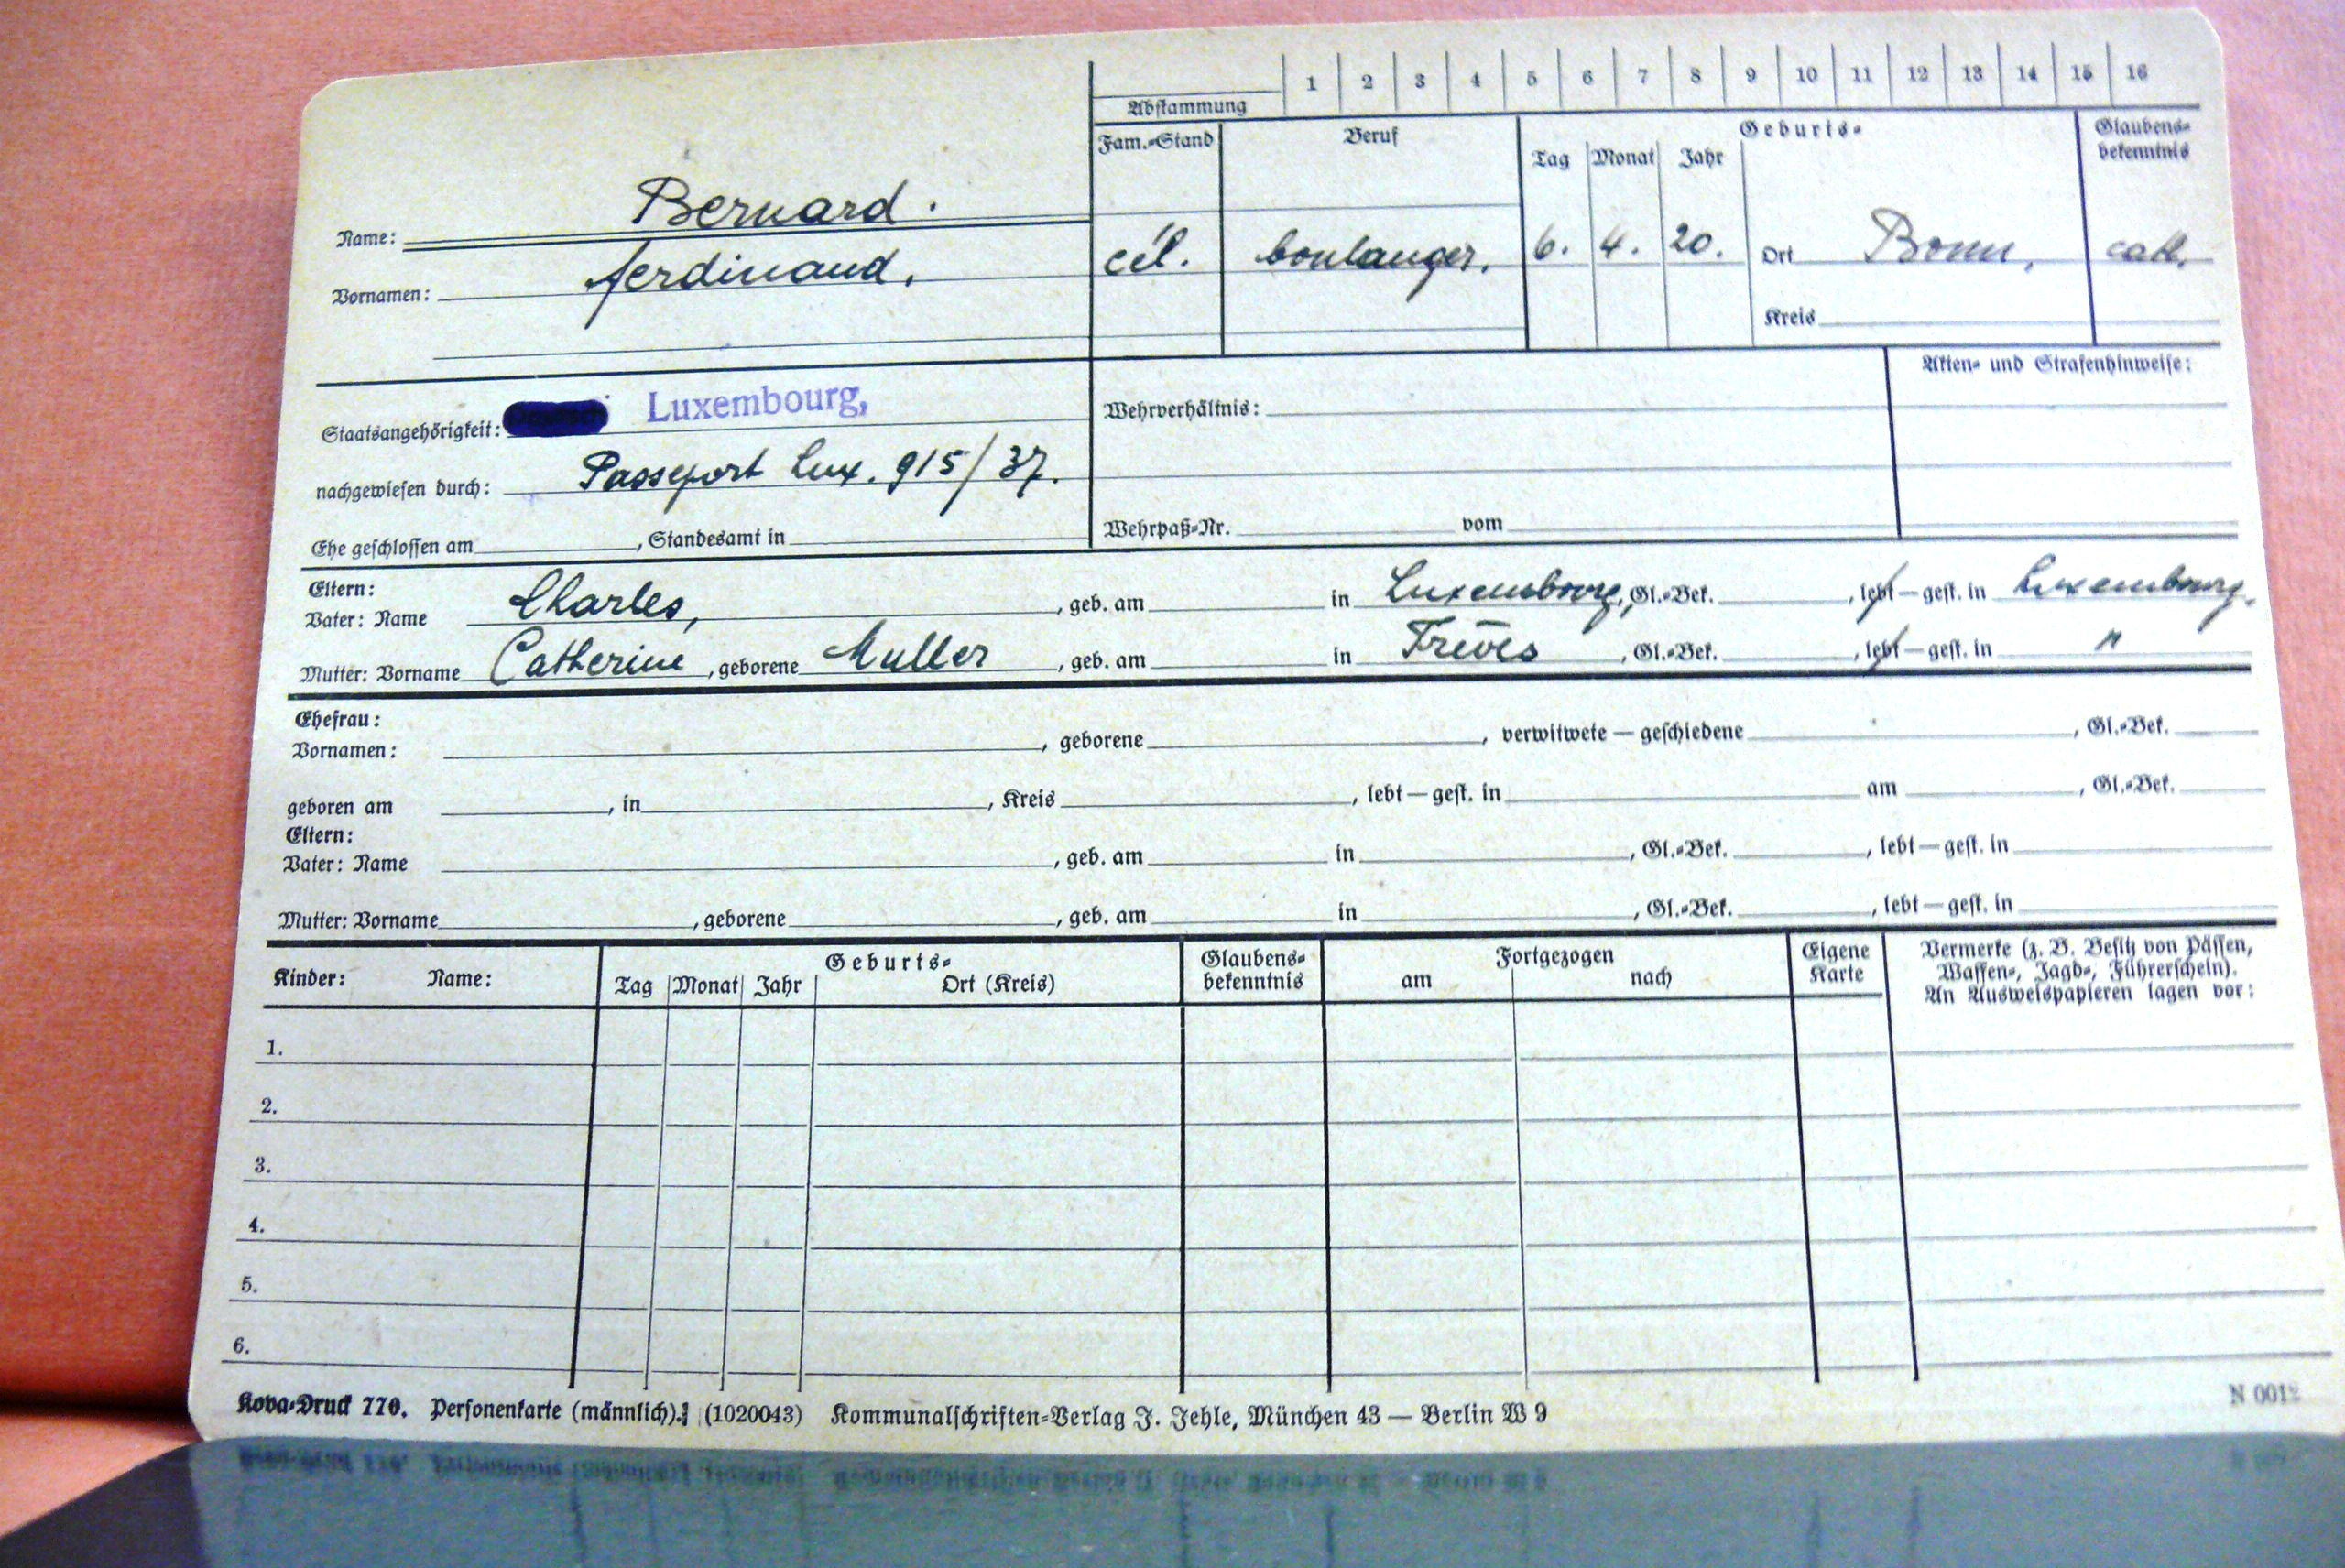 1 2 3 4 5 6 7 8 9 10 11 12 13 14 15 16
Abstammung
Fam.-Stand Beruf Geburts- Glaubens-
Tag Monat Jahr bekenntnis
Name: Bernard.
Vornamen: ferdinand, cél. boulanger. 6. 4. 20. Ort Bonn, cath.
Kreis
Staatsangehörigkeit: Deutsch Luxembourg, Wehrverhältnis: Akten- und Strafenhinweise:
nachgewiesen durch: Passeport Lux. 915/37.
Ehe geschlossen am , Standesamt in Wehrpaß-Nr. vom
Eltern:
Vater: Name Charles, , geb. am in Luxembourg, Gl.-Bek. , lebt — gest. in Luxembourg.
Mutter: Vorname Catherine , geborene Muller , geb. am in Trèves , Gl.-Bek. , lebt — gest. in "
Ehefrau:
Vornamen: , geborene , verwitwete — geschiedene , Gl.-Bek.
geboren am , in , Kreis , lebt — gest. in am , Gl.-Bek.
Eltern:
Vater: Name , geb. am in , Gl.-Bek. , lebt — gest. in
Mutter: Vorname , geborene , geb. am in , Gl.-Bek. , lebt — gest. in
Kinder: Name: Geburts- Glaubens- Fortgezogen Eigene Vermerke (z. B. Besitz von Pässen,
Tag Monat Jahr Ort (Kreis) bekenntnis am nach Karte Waffen-, Jagd-, Führerschein).
An Ausweispapieren lagen vor:
1.
2.
3.
4.
5.
6.
Kova-Druck 770. Personenkarte (männlich). (1020043) Kommunalschriften-Verlag J. Jehle, München 43 — Berlin W 9